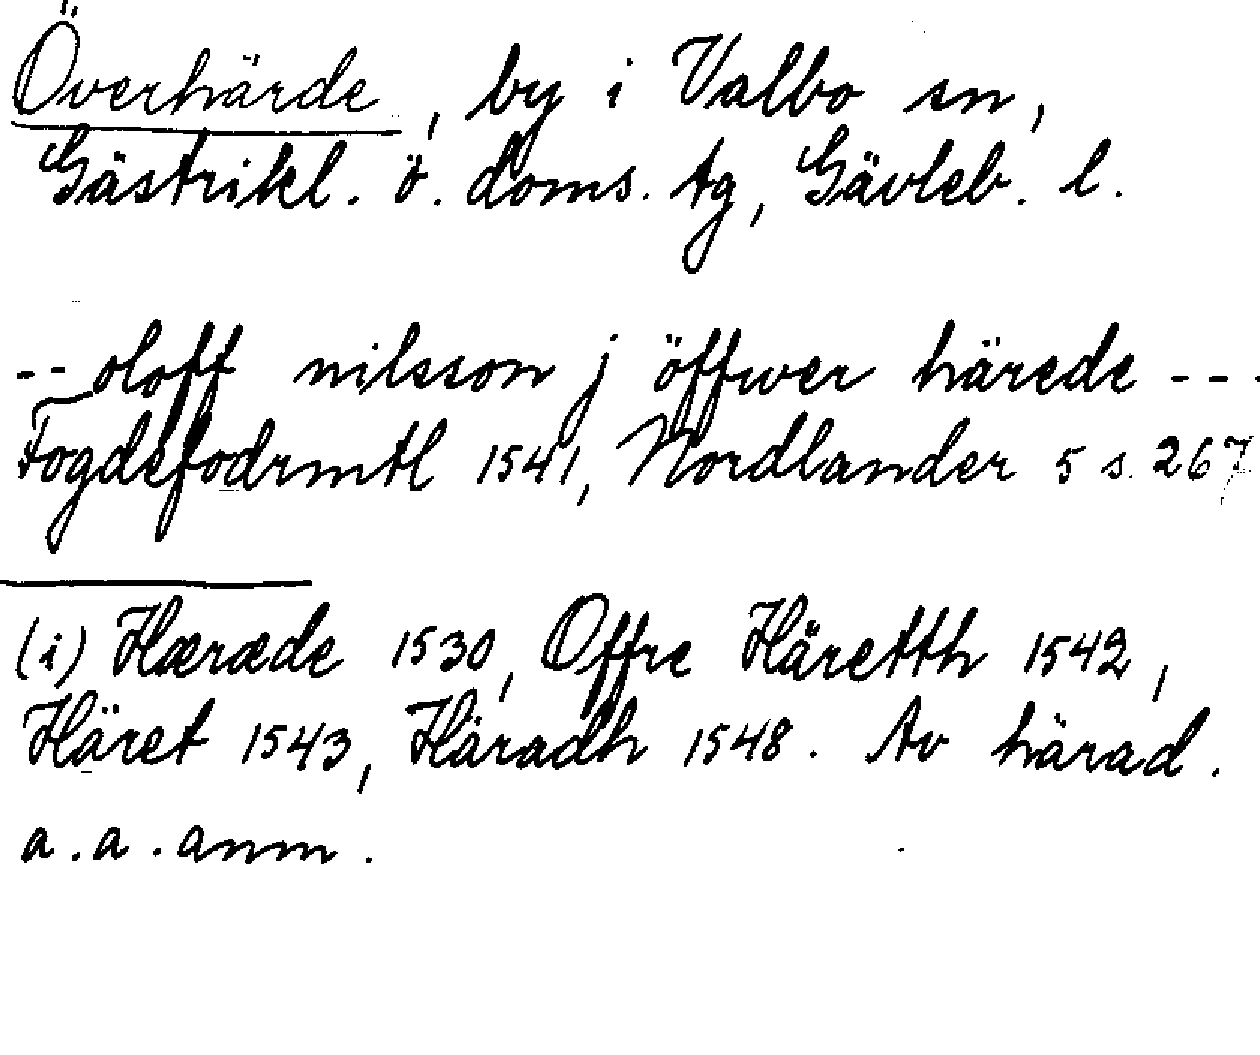 Överhärde, by i Valbo sn,
Gästrikl. ö. doms. tg, Gävleb. l.
-- oloff nilsson j öffwer härede ---
Fogdefodrmtl 1541, Nordlander 5 s. 267
(i) Hæræde 1530, Offre Häretth 1542,
Häret 1543, Häradh 1548. Av härad.
a.a. anm.